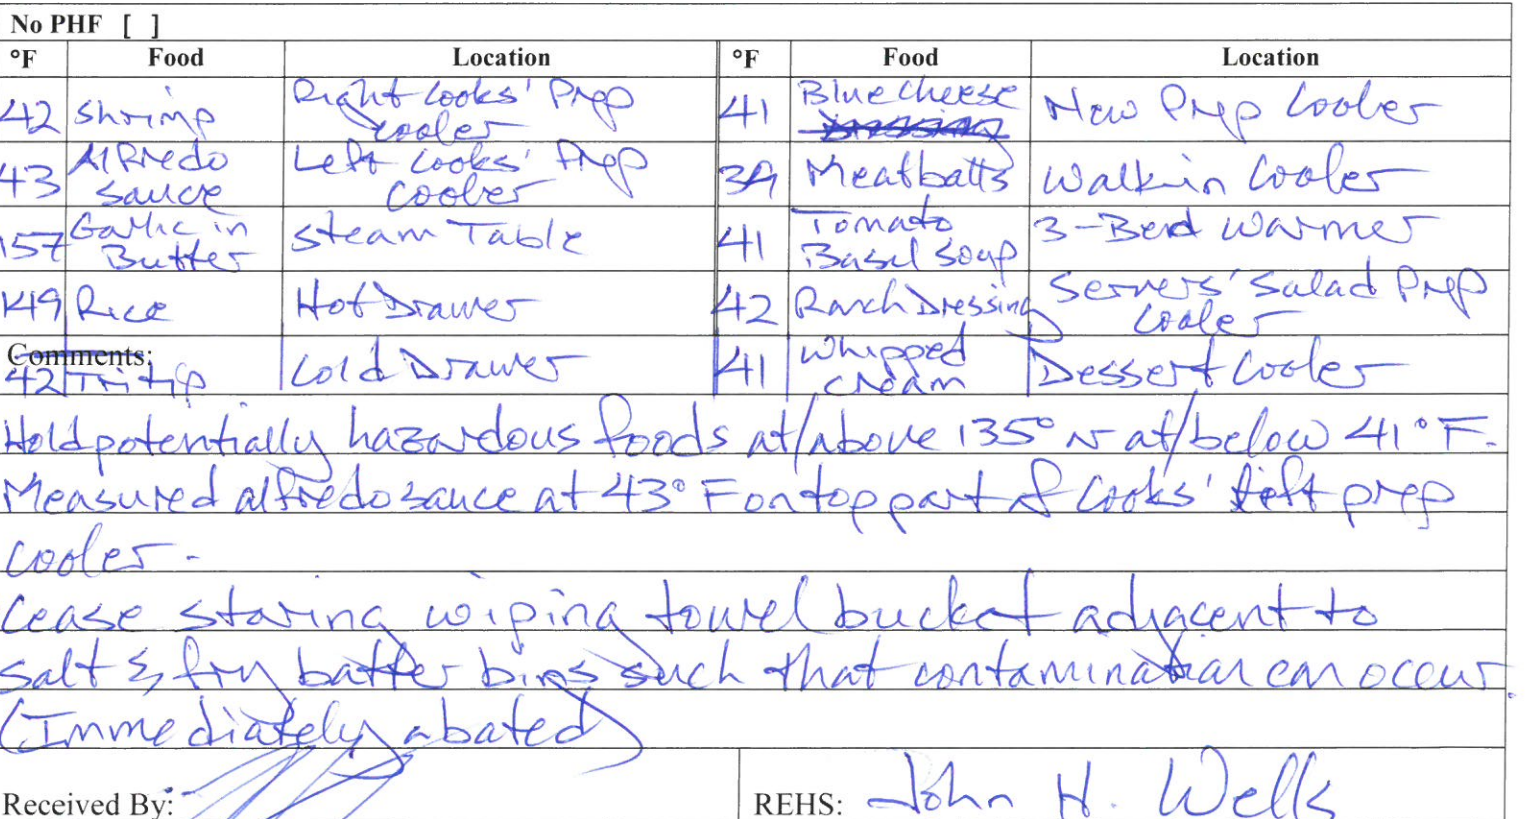 No PHF [ ]
°F Food Location °F Food Location
42 Shrimp Right Cooks' Prep Cooler 41 Blue Cheese New Prep Cooler
43 Alfredo Sauce Left Cooks' Prep Cooler 39 Meatballs Walk-in Cooler
157 Garlic in Butter Steam Table 41 Tomato Basil Soup 3-Bend Warmer
149 Rice Hot Drawer 42 Ranch Dressing Servers' Salad Prep Cooler
Comments:
42 Tri tip Cold Drawer 41 Whipped Cream Dessert Cooler
Hold potentially hazardous foods at/above 135° or at/below 41°F.
Measured alfredo sauce at 43°F on top part of Cooks' left prep
cooler.
Cease storing wiping towel bucket adjacent to
salt & fry batter bins such that contamination can occur.
(Immediately abated)
Received By: REHS: John H. Wells